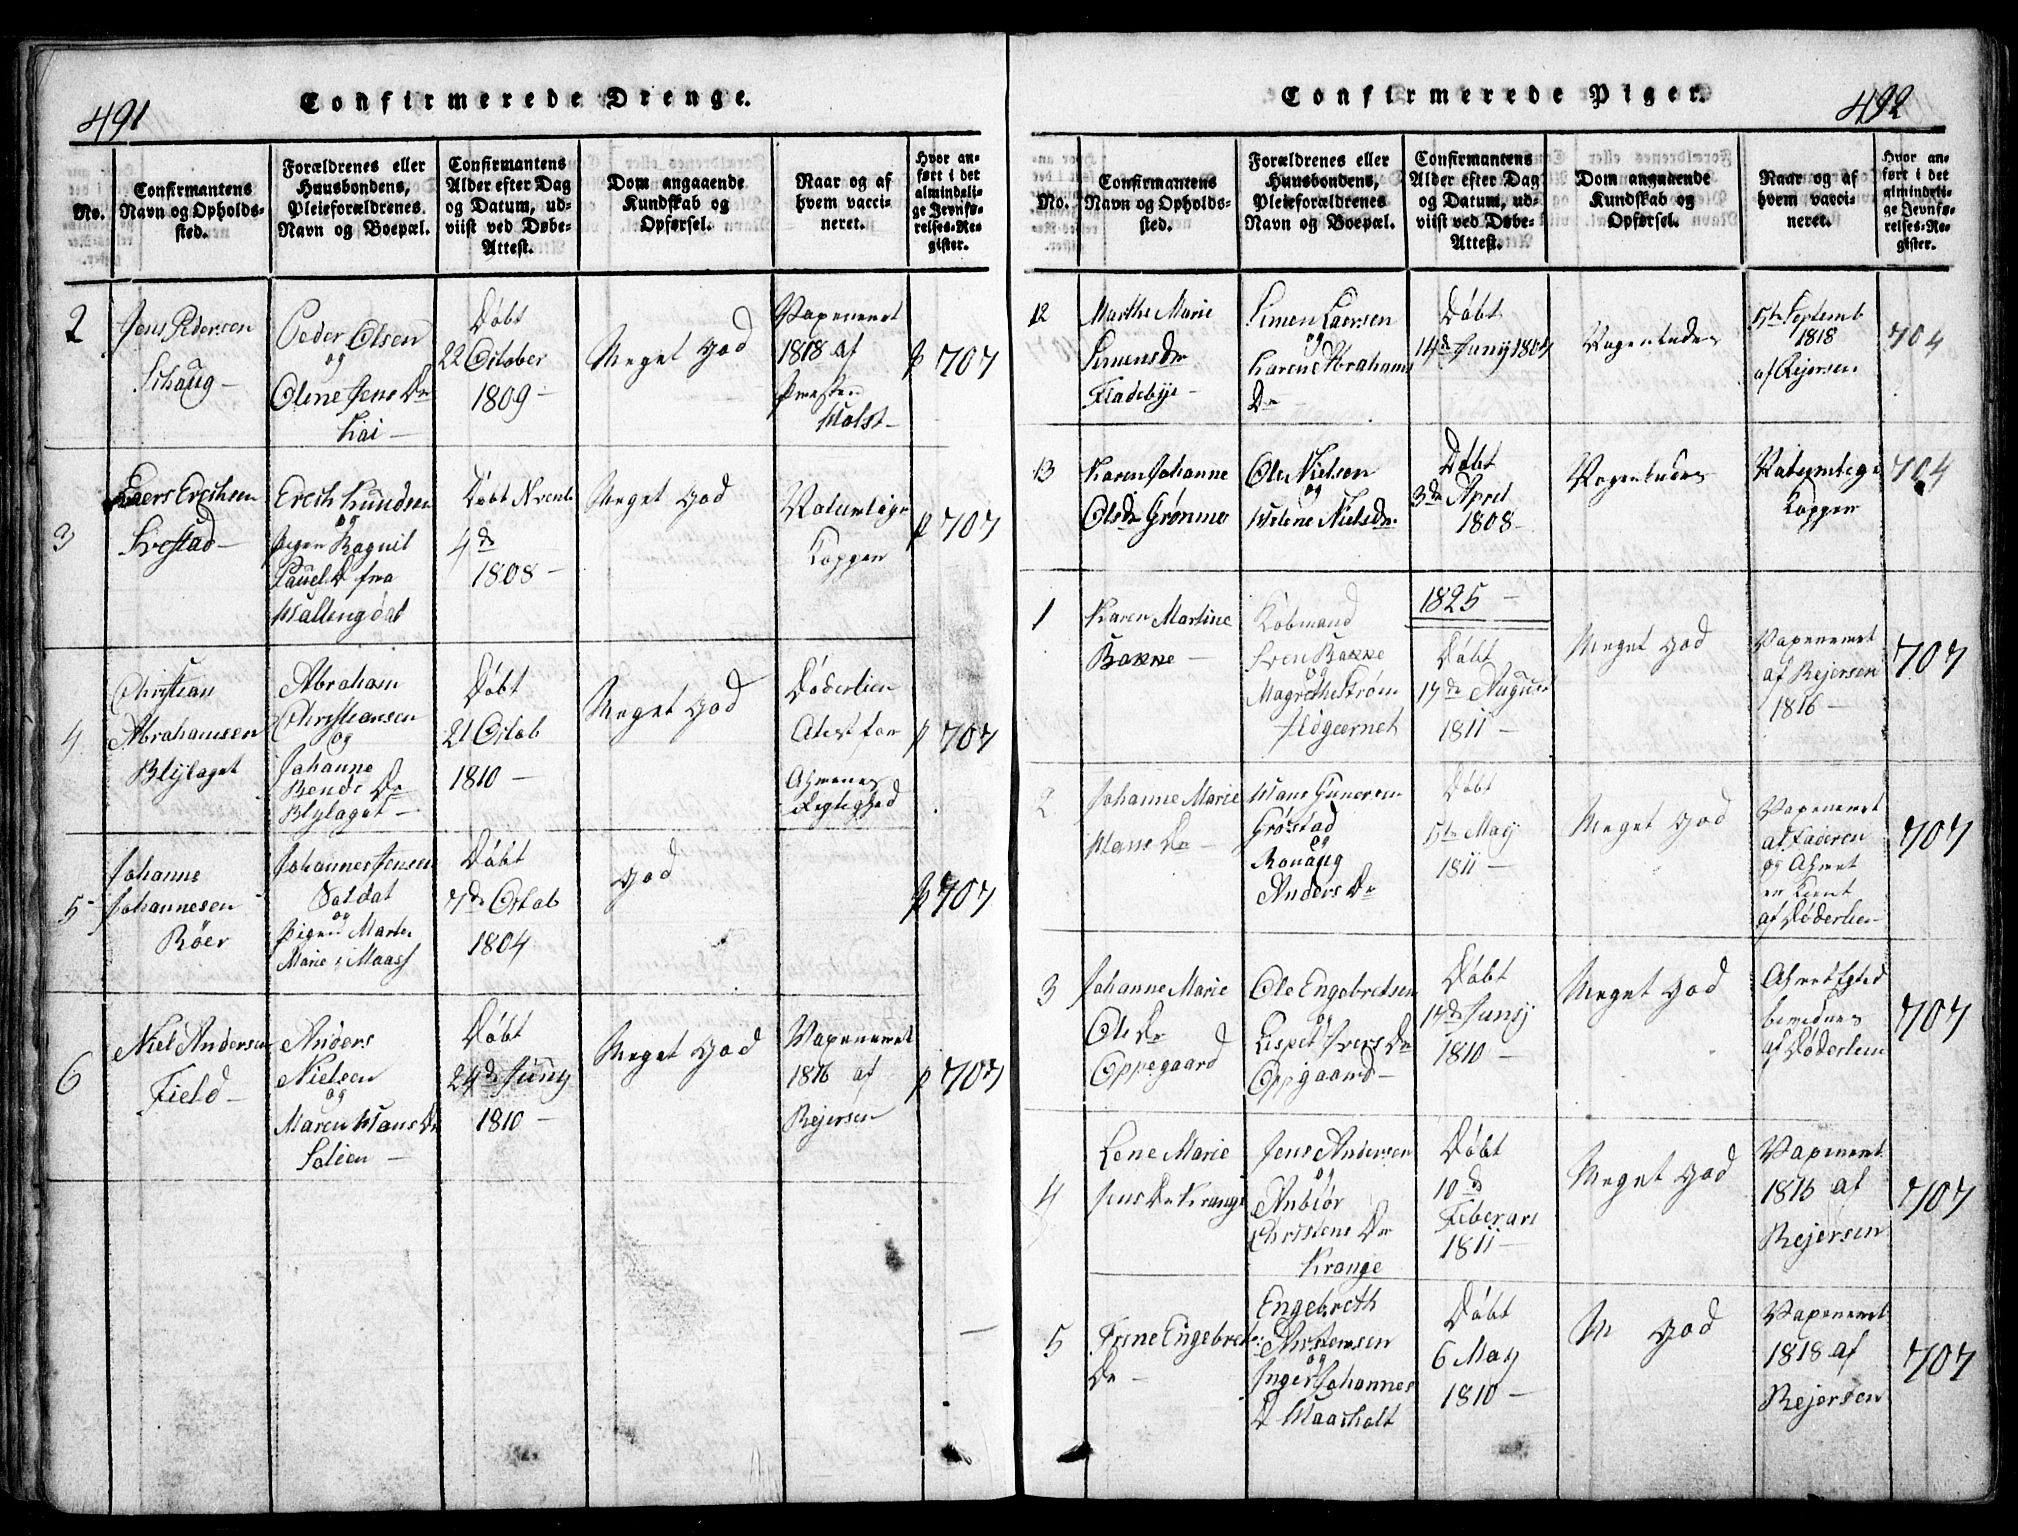 491
Confirmerede Drenge.
No.
Confirmantens Navn og Opholds-sted.
Forældrenes eller Huusbondens, Pleieforældrenes Navn og Boepæl.
Confirmantens Alder efter Dag og Datum, ud-viist ved Døbe-Attest.
Dom angaaende Kundskab og Opførsel.
Naar og af hvem vacci-neret.
Hvor an-ført i det almindeli-ge Jevnfø-relses-Re-gister.
2
Jens Pedersen
Schaug
Peder Olsen
og
Olene Jens Dr
Kai
Døbt
22 October
1809
Meget god
Vaxeneret
1818 af
Præsten
Holst
p 707
3
Laers Erichsen
Frestad
Erich Knudsen
og
Pigen Ragnil
Pauel D fra
Wallengdal
Døbt Nvemb
4de
1808
Meget god
Naturlige
Kopper
p 707
4
Christian
Abrahamsen
Blylaget
Abraham
Christiansen
og
Johanne
Bends Dr
Blylaget
Døbt
21 Octob
1810
Meget god
Døderlien
Atest for
p 707
5
Johanne
Johannesen
Røer
Johannes Jensen
Soldat
og
Pigen Marte
Marie i Maass
Døbt
7de Octob
1804
god
p 707
6
Niel Andersen
Field
Anders
Nielsen
og
Maren Hans Dr
Solien
Døbt
24de Juny
1810
Meget god
Vaxeneret
1816 af
Rejersen
p 707
492
Confirmerede Piger.
No.
Confirmantens Navn og Opholds-sted.
Forældrenes eller Huusbondens, Pleieforældrenes Navn og Boepæl.
Confirmantens Alder efter Dag og Datum, ud-viist ved Døbe-Attest.
Dom angaaende Kundskab og Opførsel.
Naar og af hvem vacci-neret.
Hvor an-ført i det almindeli-ge Jevnfø-relses-Re-gister.
12
Marthe Marie
Simens Dr
Fladebye
Simen Laersen
og
Karen Abrahams
Dr
Døbt
14de Juny 1804
5te Septemb
1818
af Rejersen
704
13
Karen Johanne
Ols Dr Grønmo
Ole Nielsen
og
Helene Niels Dr
Døbt
3de April
1808
Naturlige
Kopper
704
1825
1
Karen Martine
Bakke
Købmand
Sven Bakke
og
Magrethe Strøm
Døbt
17de August
1811
Meget god
Vaxeneret
af Rejersen
1816
707
2
Johanne Marie
Hans Dr
Hans Gunersen
Grøstad
og
Ronaug
Anders Dr
Døbt
5te May
1811
Meget god
Vaxeneret
af Faderen
og
af Døderlien
707
3
Johanne Marie
Ole Dr
Oppegaard
Ole Engebretsen
og
Lispet Ivers Dr
Oppgaard
Døbt
17de Juny
1810
Meget god
af Døderlein
707
4
Lene Marie
Jens Dr Krange
Jens Andersen
og
Anbiør
Christens Dr
Krange
Døbt
10de
Feberari
1811
Meget god
Vaxeneret
1815 af
Rejersen
707
5
Trine Engebret
Dr
Engebreth
Christensen
og
Inger Johannes
D Haarholt
Døbt
6 May
1810
M god
Vaxeneret
1818 af
Rejersen
707